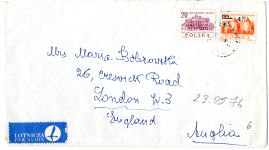 POLSKA POLSKA
Mrs Maria Bobrowska
26, Creswick Road
London W.3
England
29.05.76
Anglia
6
LOTNICZA
PAR AVION